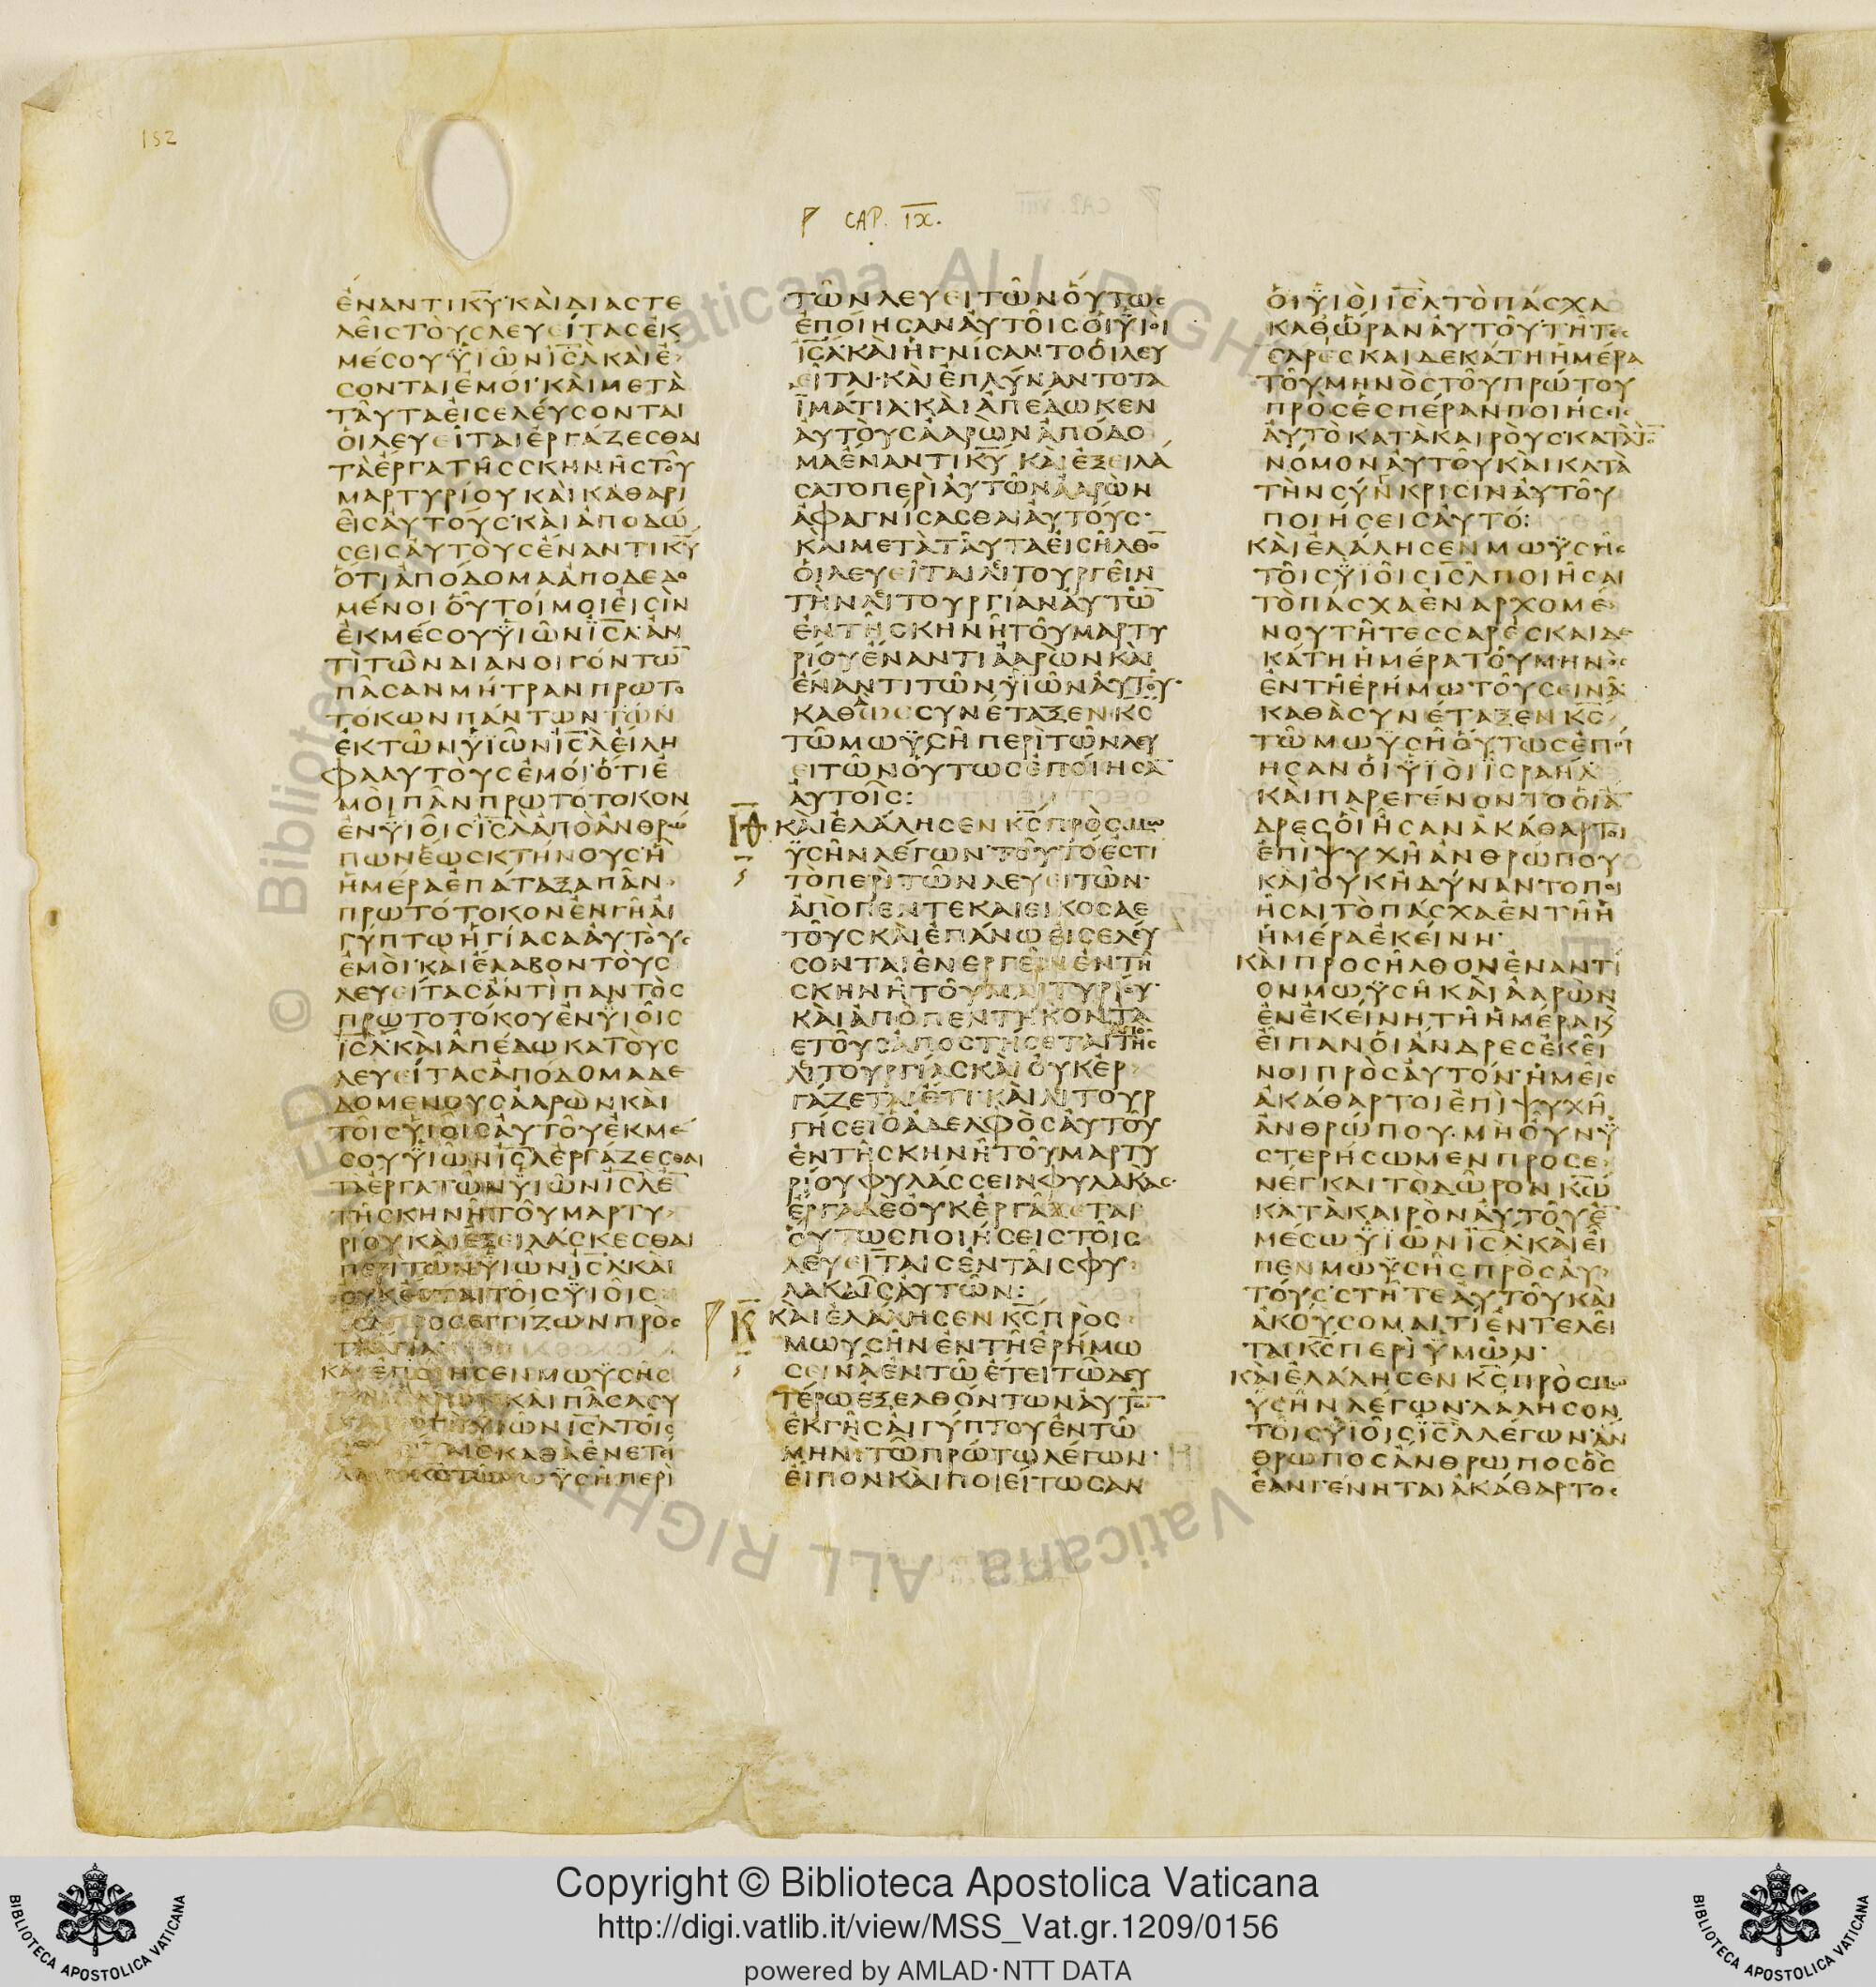 152
CAP. IX.
ἐναντι κ̅υ̅· καὶ διαστε
λεῖς τοὺς λευείτας ἐκ
μέσου ϋἱῶν ι̅σ̅λ̅ καὶ ἔ
σονται ἐμοί· καὶ μετὰ
ταῦτα εἰσελεύσονται
οἱ λευεῖται ἐργάζεσθαι
τὰ ἔργα τῆς σκηνῆς τοῦ
μαρτυρίου καὶ καθαρι
εῖς αὐτούς· καὶ ἀποδώ
σεις αὐτοὺς ἔναντι κ̅υ̅
ὅτι ἀπόδομα ἀποδεδο
μένοι οὗτοί μοι εἰσὶν
ἐκ μέσου ϋἱῶν ι̅σ̅λ̅· ἀν
τὶ τῶν διανοιγόντω̅
πᾶσαν μήτραν πρωτο
τόκων πάντων τῶν
ἐκ τῶν ϋἱῶν ι̅σ̅λ̅ εἴλη
φα αὐτοὺς ἐμοί· ὅτι ἐ
μοὶ πᾶν πρωτότοκον
ἐν ϋἱοῖς ι̅σ̅λ̅ ἀπὸ ἀνθρώ
πων ἕως κτήνους· ἧ
ἡμέρα ἐπάταξα πᾶν
πρωτότοκον ἐν γῆ αἰ
γύπτω ἡγίασα αὐτοὺς
ἐμοί· καὶ ἔλαβον τοὺς
λευείτας ἀντὶ παντὸς
πρωτοτόκου ἐν ϋἱοῖς
ι̅σ̅λ̅· καὶ ἀπέδωκα τοὺς
λευείτας ἀπόδομα δε
δομένους ἀαρὼν καὶ
τοῖς ϋἱοῖς αὐτοῦ ἐκ μέ
σου ϋἱῶν ι̅σ̅λ̅ ἐργάζεσθαι
τὰ ἔργα τῶν ϋἱῶν ι̅σ̅λ̅ ἐ̅
τῆ σκηνῆ τοῦ μαρτυ
ρίου καὶ ἐξειλάσκεσθαι
περὶ τῶν ϋἱῶν ι̅σ̅λ̅ καὶ
οὐκ ἔσται τοῖς ϋἱοῖς
προσεγγίζων πρὸς
τὰ ἅγια
καὶ ἐποίησεν μωϋσῆς
καὶ πᾶσα συ
ϋἱῶν ι̅σ̅λ̅ τοῖς
καθὰ ἐνετεί
μωϋσῆ περὶ
τῶν λευειτῶν οὕτως
ἐποίησαν αὐτοῖς οἱ ϋἱοὶ
ι̅σ̅λ̅ καὶ ἡγνίσαντο οἱ λευ
εῖται· καὶ ἐπλύναντο τὰ
ϊμάτια· καὶ ἀπέδωκεν
αὐτοὺς ἀαρὼν ἀπόδο
μα ἔναντι κ̅υ̅ καὶ ἐξειλά
σατο περὶ αὐτῶν ἀαρὼν
ἀφαγνίσασθαι αὐτούς·
καὶ μετὰ ταῦτα εἰσῆλθο̅
οἱ λευεῖται λιτουργεῖν
τὴν λιτουργίαν αὐτῶ̅
ἐν τῆ σκηνῆ τοῦ μαρτυ
ρίου ἔναντι ἀαρὼν καὶ
ἔναντι τῶν ϋἱῶν αὐτοῦ·
καθὼς συνέταξεν κ̅ς̅
τῶ μωϋσῆ περὶ τῶν λευ
ειτῶν οὕτως ἐποίησα̅
αὐτοῖς:
ΙΘ καὶ ἐλάλησεν κ̅ς̅ πρὸς μω
ϋσῆν λέγων· τοῦτό ἐστι
τὸ περὶ τῶν λευειτῶν·
ἀπὸ πεντεκαιεικοσαε
τοῦς καὶ ἐπάνω εἰσελεύ
σονται ἐνεργεῖν ἐν τῆ
σκηνῆ τοῦ μαρτυρίου·
καὶ ἀπὸ πεντηκοντα
ετοῦς ἀποστήσεται ἀπὸ τῆς
λιτουργίας καὶ οὐκ ἐρ
γάζεται ἔτι· καὶ λιτουρ
γήσει ὁ ἀδελφὸς αὐτοῦ
ἐν τῆ σκηνῆ τοῦ μαρτυ
ρίου φυλάσσειν φυλακὰς·
ἔργα δὲ οὐκ ἐργᾶται
οὕτως ποιήσεις τοῖς
λευείταις ἐν ταῖς φυ
λακαῖς αὐτῶν:
Κ καὶ ἐλάλησεν κ̅ς̅ πρὸς
μωυσῆν ἐν τῆ ἐρήμω
σεινᾶ ἐν τῶ ἔτει τῶ δευ
τέρω ἐξελθόντων αὐτῶ̅
ἐκ γῆς αἰγύπτου ἐν τῶ
μηνὶ τῶ πρώτω λέγων·
εἶπον καὶ ποιείτωσαν
οἱ ϋἱοὶ ι̅σ̅λ̅ τὸ πάσχα
καθ᾽ ὥραν αὐτοῦ· τῆ τεσ
σαρεσκαιδεκάτη ἡμέρα
τοῦ μηνὸς τοῦ πρώτου
πρὸς ἑσπέραν ποιήσεις
αὐτὸ κατὰ καιροὺς· κατὰ τὸ̅
νόμον αὐτοῦ καὶ κατὰ
τὴν σύνκρισιν αὐτοῦ
ποιήσεις αὐτό:
καὶ ἐλάλησεν μωϋσῆς
τοῖς ϋἱοῖς ι̅σ̅λ̅ ποιῆσαι
τὸ πάσχα ἐναρχομέ
νου τῆ τεσσαρεσκαιδε
κάτη ἡμέρα τοῦ μηνὸς
ἐν τῆ ἐρήμω τοῦ σεινᾶ
καθὰ συνέταξεν κ̅ς̅
τῶ μωϋσῆ οὕτως ἐποί
ησαν οἱ ϋἱοὶ ισραήλ
καὶ παρεγένοντο οἱ ἄ̅
δρες οἳ ἦσαν ἀκάθαρτοι
ἐπὶ ψυχῆ ἀνθρώπου
καὶ οὐκ ἠδύναντο ποι
ῆσαι τὸ πάσχα ἐν τῆ ἡ
ἡμέρα ἐκείνη·
καὶ προσῆλθον ἐναντί
ον μωϋσῆ καὶ ἀαρὼν
ἐν ἐκείνη τῆ ἡμέρα κ̀
εἶπαν οἱ ἄνδρες ἐκεῖ
νοι πρὸς αὐτόν· ἡμεῖς
ἀκάθαρτοι ἐπὶ ψυχῆ
ἀνθρώπου· μὴ οὖν ϋ
στερήσωμεν προσε
νέγκαι τὸ δῶρον κ̅ω̅
κατὰ καιρὸν αὐτοῦ ἐ̅
μέσω ϋἱῶν ι̅σ̅λ̅ καὶ εἶ
πεν μωϋσῆς πρὸς αὐ
τούς· στῆτε αὐτοῦ καὶ
ἀκούσομαι τί ἐντελεῖ
ται κ̅ς̅ περὶ ϋμῶν·
καὶ ἐλάλησεν κ̅ς̅ πρὸς μω
υσῆν λέγων· λάλησον
τοῖς ϋἱοῖς ι̅σ̅λ̅ λέγων· ἄν
θρωπος ἄνθρωπος ὃς
ἐὰν γένηται ἀκάθαρτος
Copyright © Biblioteca Apostolica Vaticana
http://digi.vatlib.it/view/MSS_Vat.gr.1209/0156
powered by AMLAD·NTT DATA
BIBLIOTECA APOSTOLICA VATICANA
BIBLIOTECA APOSTOLICA VATICANA